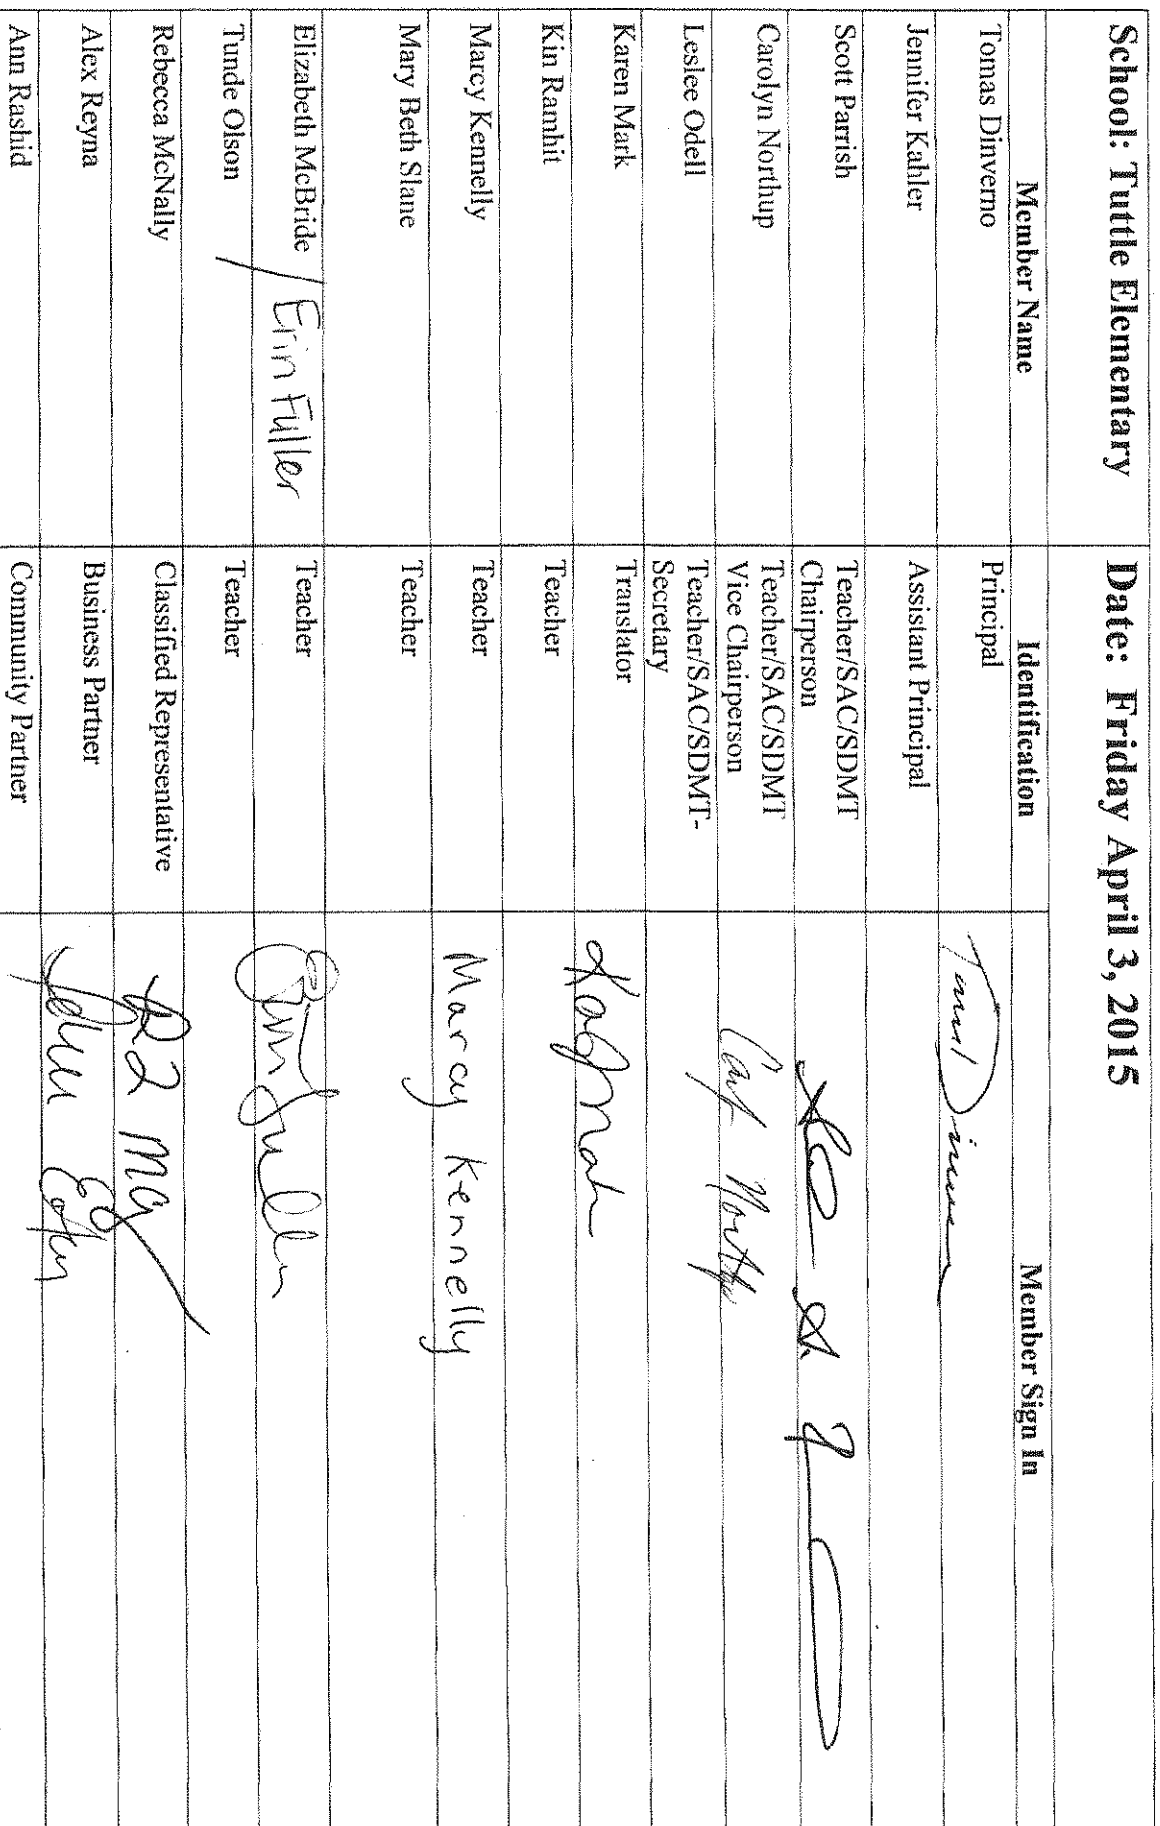 School: Tuttle Elementary Date: Friday April 3, 2015
Member Name Identification Member Sign In
Tomas Dinverno Principal
Jennifer Kahler Assistant Principal
Scott Parrish Teacher/SAC/SDMT
Chairperson
Carolyn Northup Teacher/SAC/SDMT
Vice Chairperson
Leslee Odell Teacher/SAC/SDMT-
Secretary
Karen Mark Translator
Kin Ramhit Teacher
Marcy Kennelly Teacher Marcy Kennelly
Mary Beth Slane Teacher
Elizabeth McBride / Erin Fuller Teacher Erin Fuller
Tunde Olson Teacher
Rebecca McNally Classified Representative
Alex Reyna Business Partner
Ann Rashid Community Partner